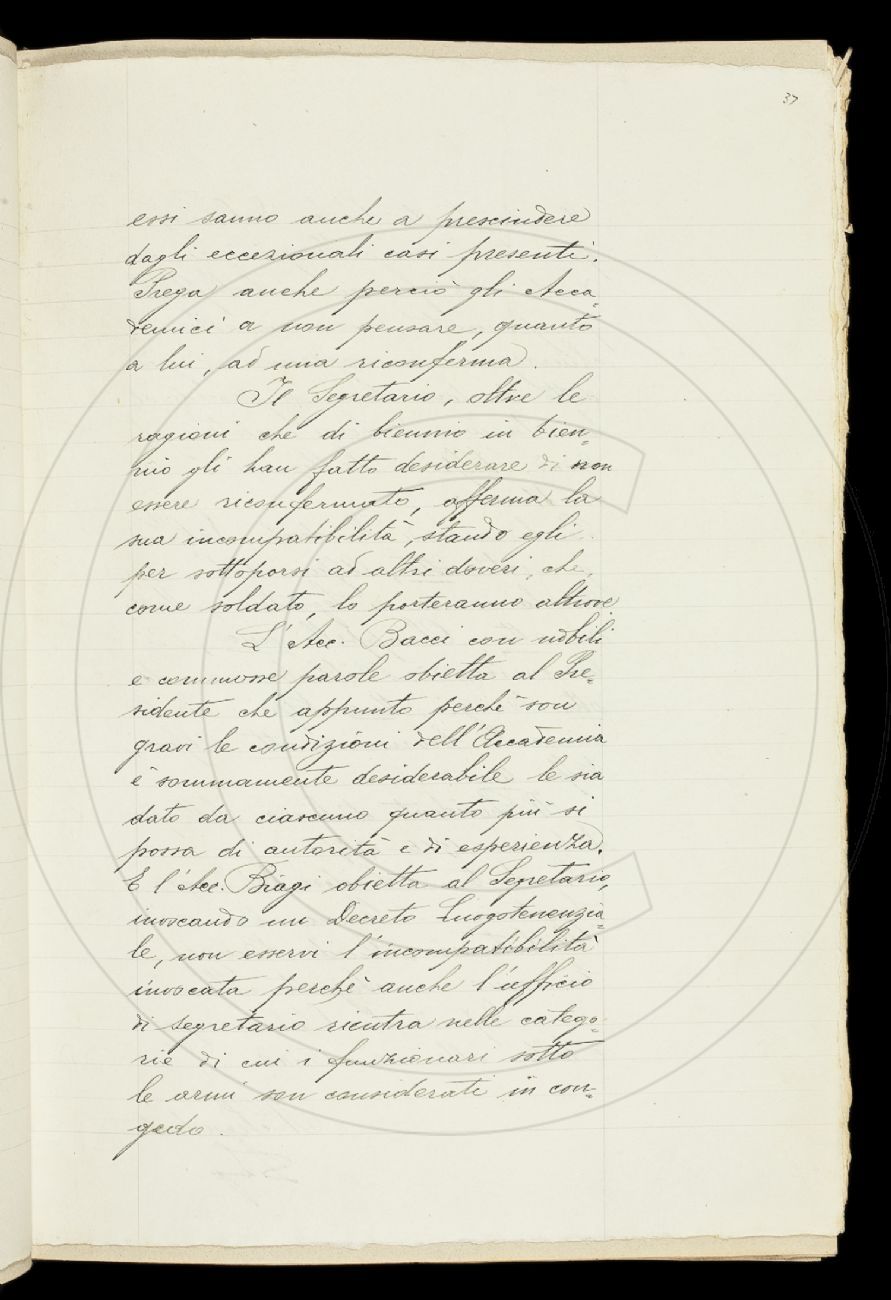 37
essi sanno anche a prescindere
dagli eccezionali casi presenti.
Prega anche perciò gli Acca=
demici a non pensare, quanto
a lui, ad una riconferma.
Il Segretario, oltre le
ragioni che di biennio in bien=
nio gli han fatto desiderare di non
essere riconfermato, afferma la
sua incompatibilità, stando egli
per sottoporsi ad altri doveri, che,
come soldato, lo porteranno altrove.
L'Acc. Bacci con nobili
e commosse parole obietta al Pre=
sidente che appunto perchè son
gravi le condizioni dell'Accademia
è sommamente desiderabile le sia
dato da ciascuno quanto più si
possa di autorità e di esperienza.
E l'Acc. Biagi obietta al Segretario,
invocando un Decreto Luogotenenzia=
le, non esservi l'incompatibilità
invocata perchè anche l'ufficio
di segretario rientra nelle catego=
rie di cui i funzionari sotto
le armi son considerati in con=
gedo.